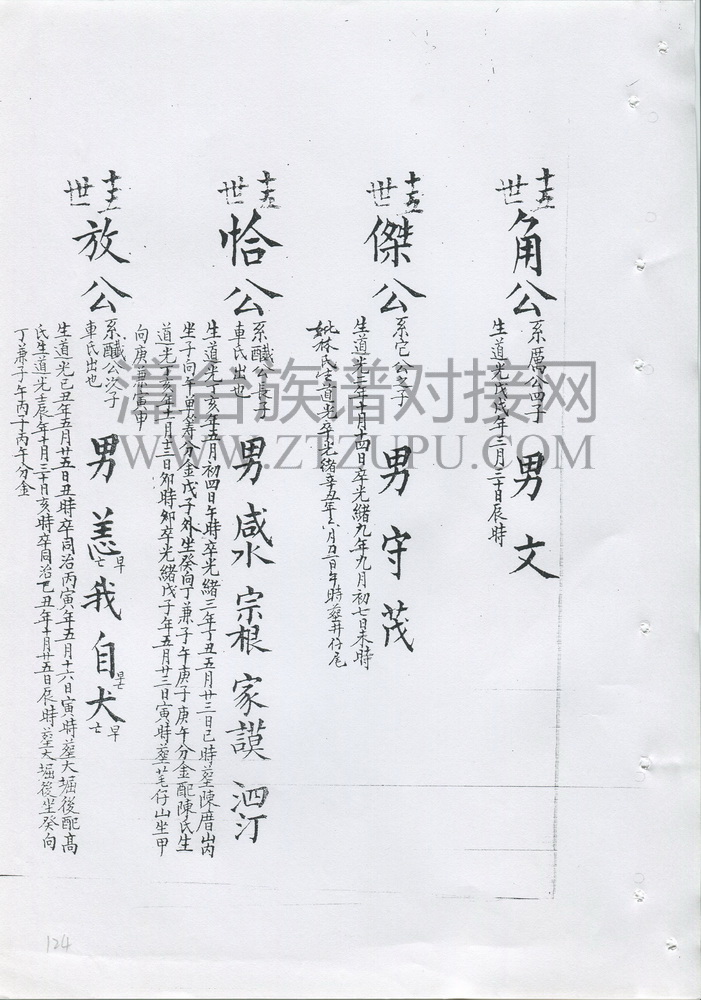 十五世
角公
系厲公四子
生道光戊戌年二月三十日辰時
男 文
十五世
傑公
系宅公之子
生道光二年十月十四日卒光緒九年九月初七日未時
妣林氏生道光卒光緒辛五年六月廿一日午時塟井仔尾
男 守 茂
十五世
恰公
系醶公長子
車氏出也
生道光丁亥年五月初四日午時卒光緒三年丁丑五月廿三日巳時塟陳厝山芮
坐子向午單寿分金戊子外坐癸向丁兼子午庚子庚午分金配陳氏生
道光丁亥年十一月十三日卯時卒光緒戊子年五月廿三日寅時塟芼仔山坐甲
向庚兼寅申
男 咸水 宗根 家謨 泗汀
十五世
放公
系醶公次子
車氏出也
生道光己丑年五月廿五日丑時卒同治丙寅年五月十六日寅時塟大堀後配高
氏生道光壬辰年十月三十日亥時卒同治己丑年十月廿五日辰時塟大堀後坐癸向
丁兼子午丙子丙午分金
男 恙 早亡 我 自 早亡 犬 早亡
清台族谱对接网
WWW.ZTZUPU.COM
124